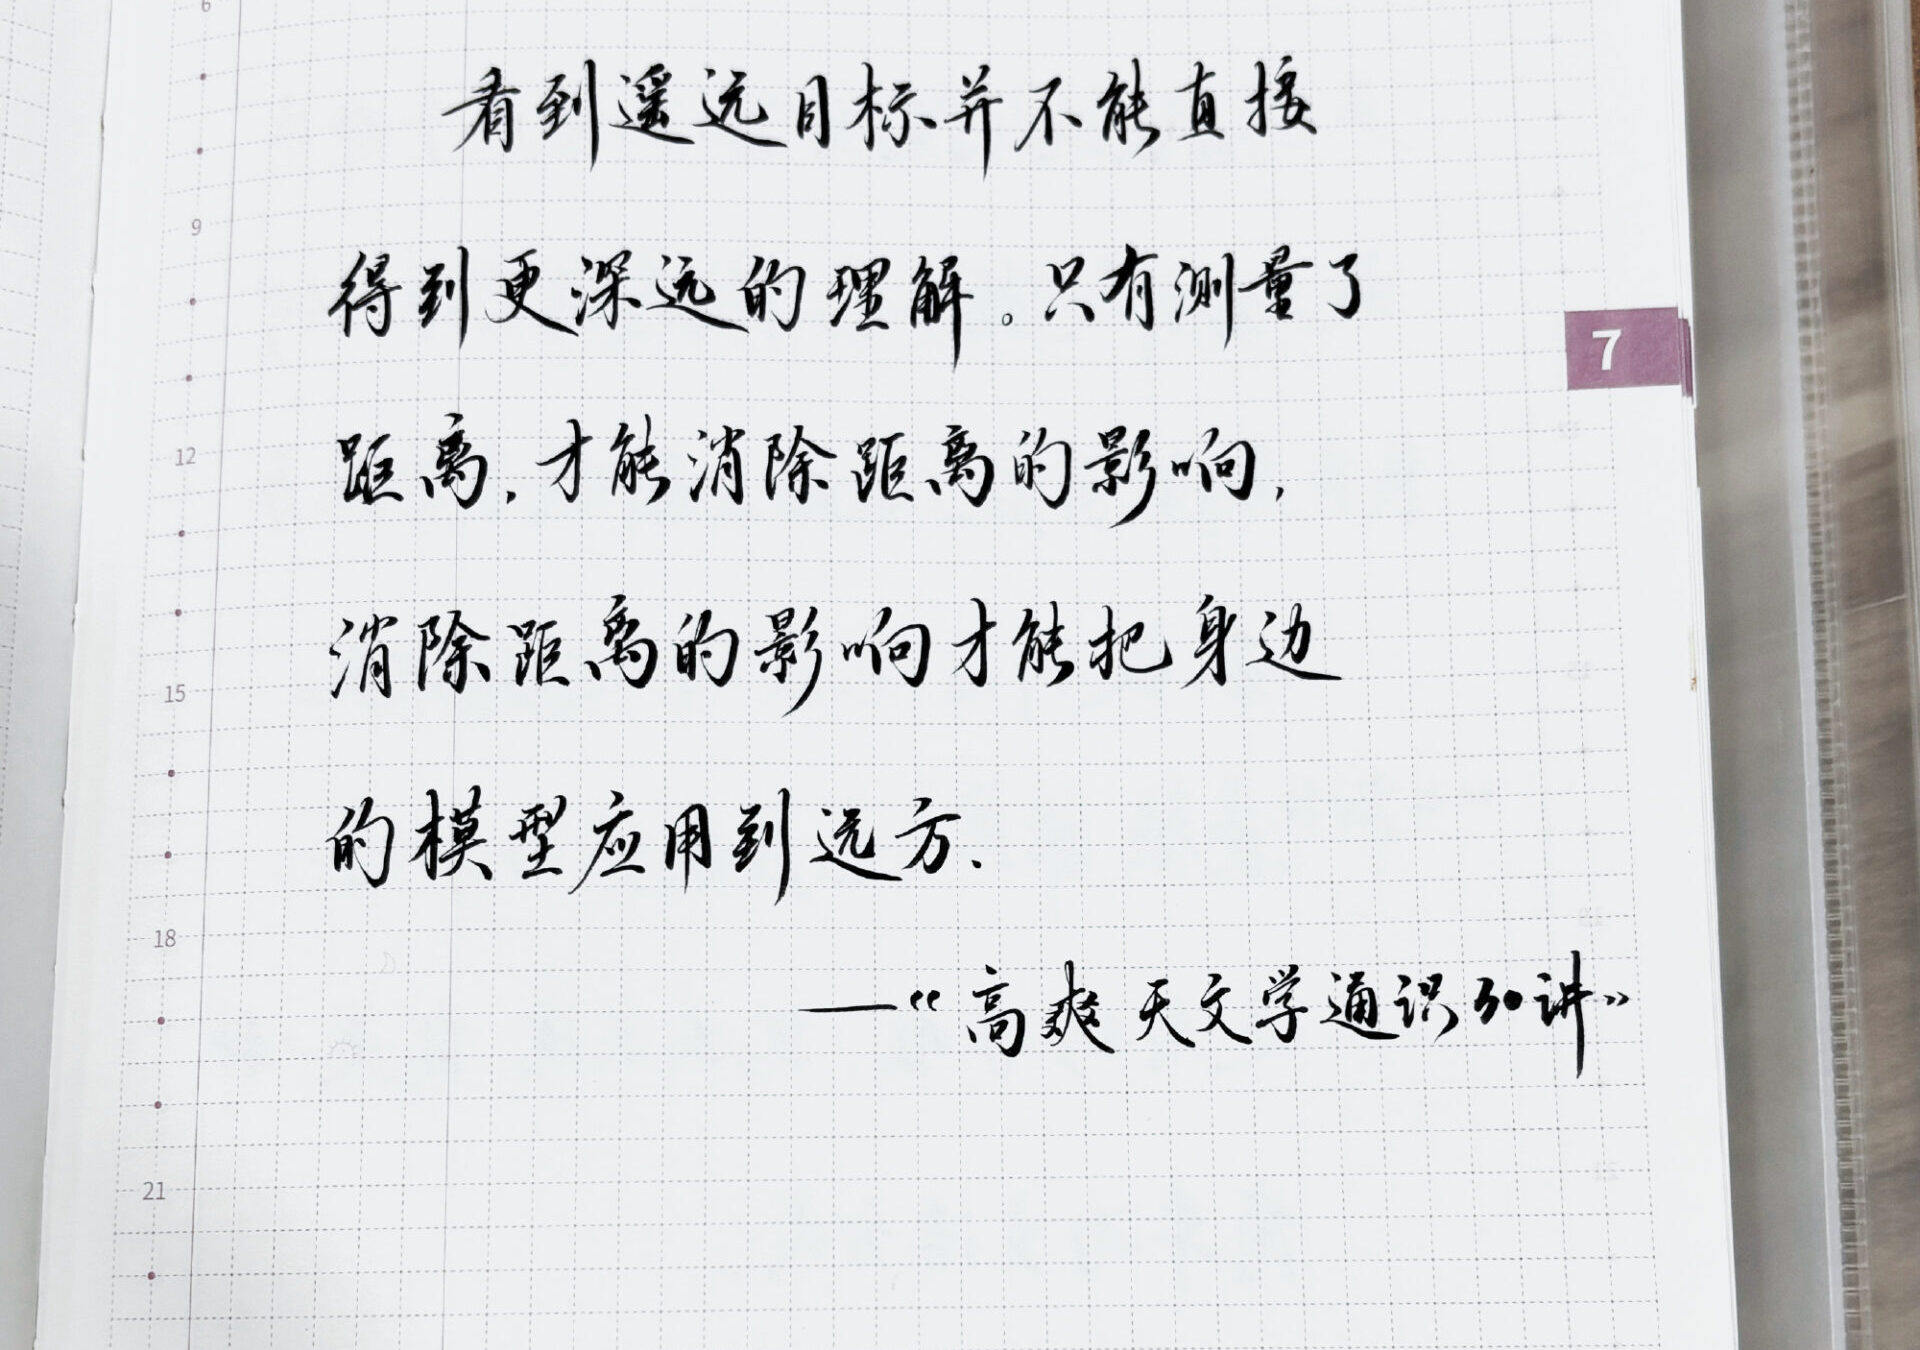 6
看到遥远目标并不能直接
9
得到更深远的理解。只有测量了
7
12
距离,才能消除距离的影响,
15
消除距离的影响才能把身边
的模型应用到远方.
18
—“高爽天文学通识30讲”
21